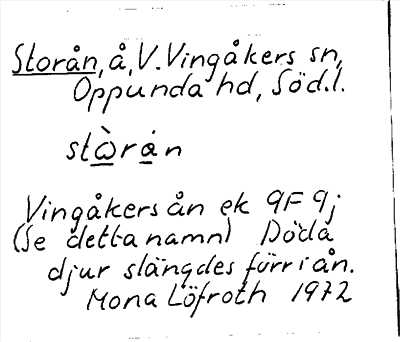 Storån, å, V. Vingåkers sn,
Oppunda hd, Söd.l.
stὼ̱rȧ̱n
Vingåkersån ek 9F 9j
(Se detta namn) Döda
djur slängdes förr i ån.
Mona Löfroth 1972